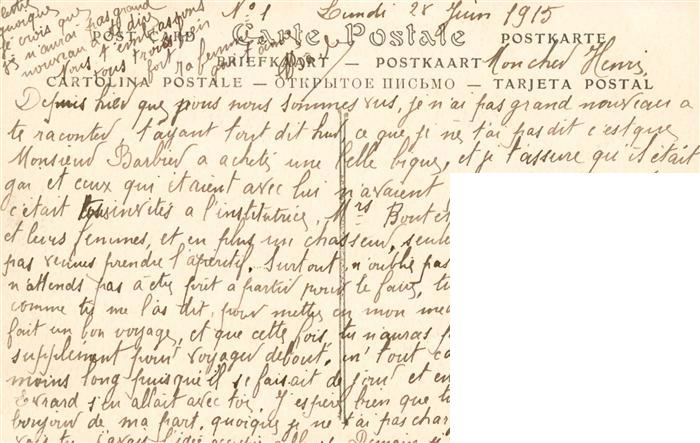 votre
quoique
je crois que
je n'aurai pas grand
nouveau à te dire
Nous t'embrassons
tous trois bien
fort ta femme
qui t'aime
N° 1 Lundi 28 Juin 1915
POST CARD Carte Postale POSTKARTE
BRIEFKAART — POSTKAART Mon cher Henri,
CARTOLINA POSTALE — ОТКРЫТОЕ ПИСЬМО — TARJETA POSTAL
Depuis hier que nous nous sommes vus, je n'ai pas grand nouveau a
te raconter, t'ayant tout dit hier, ce que je ne t'ai pas dit c'est que
Monsieur Barbier a acheté une belle bique, et je t'assure qu'il était
gai et ceux qui étaient avec lui n'avaient
c'était tous invités a l'institutrice, Mrs Bout et
et leurs femmes, et en plus un chasseur, seule
pas venues prendre l'apéritif. Surtout n'oublie pas
n'attends pas a être prêt a partir pour le faire, tu
comme tu me l'as dit, pour mettre en mon me
fait un bon voyage, et que cette fois, tu n'auras p
supplément pour voyager debout, en tout ca
moins long puisqu'il se faisait de jour et en
Evrard s'en allait avec toi. J'espère bien que tu
bonjour de ma part, quoique je ne t'ai pas char
Demain